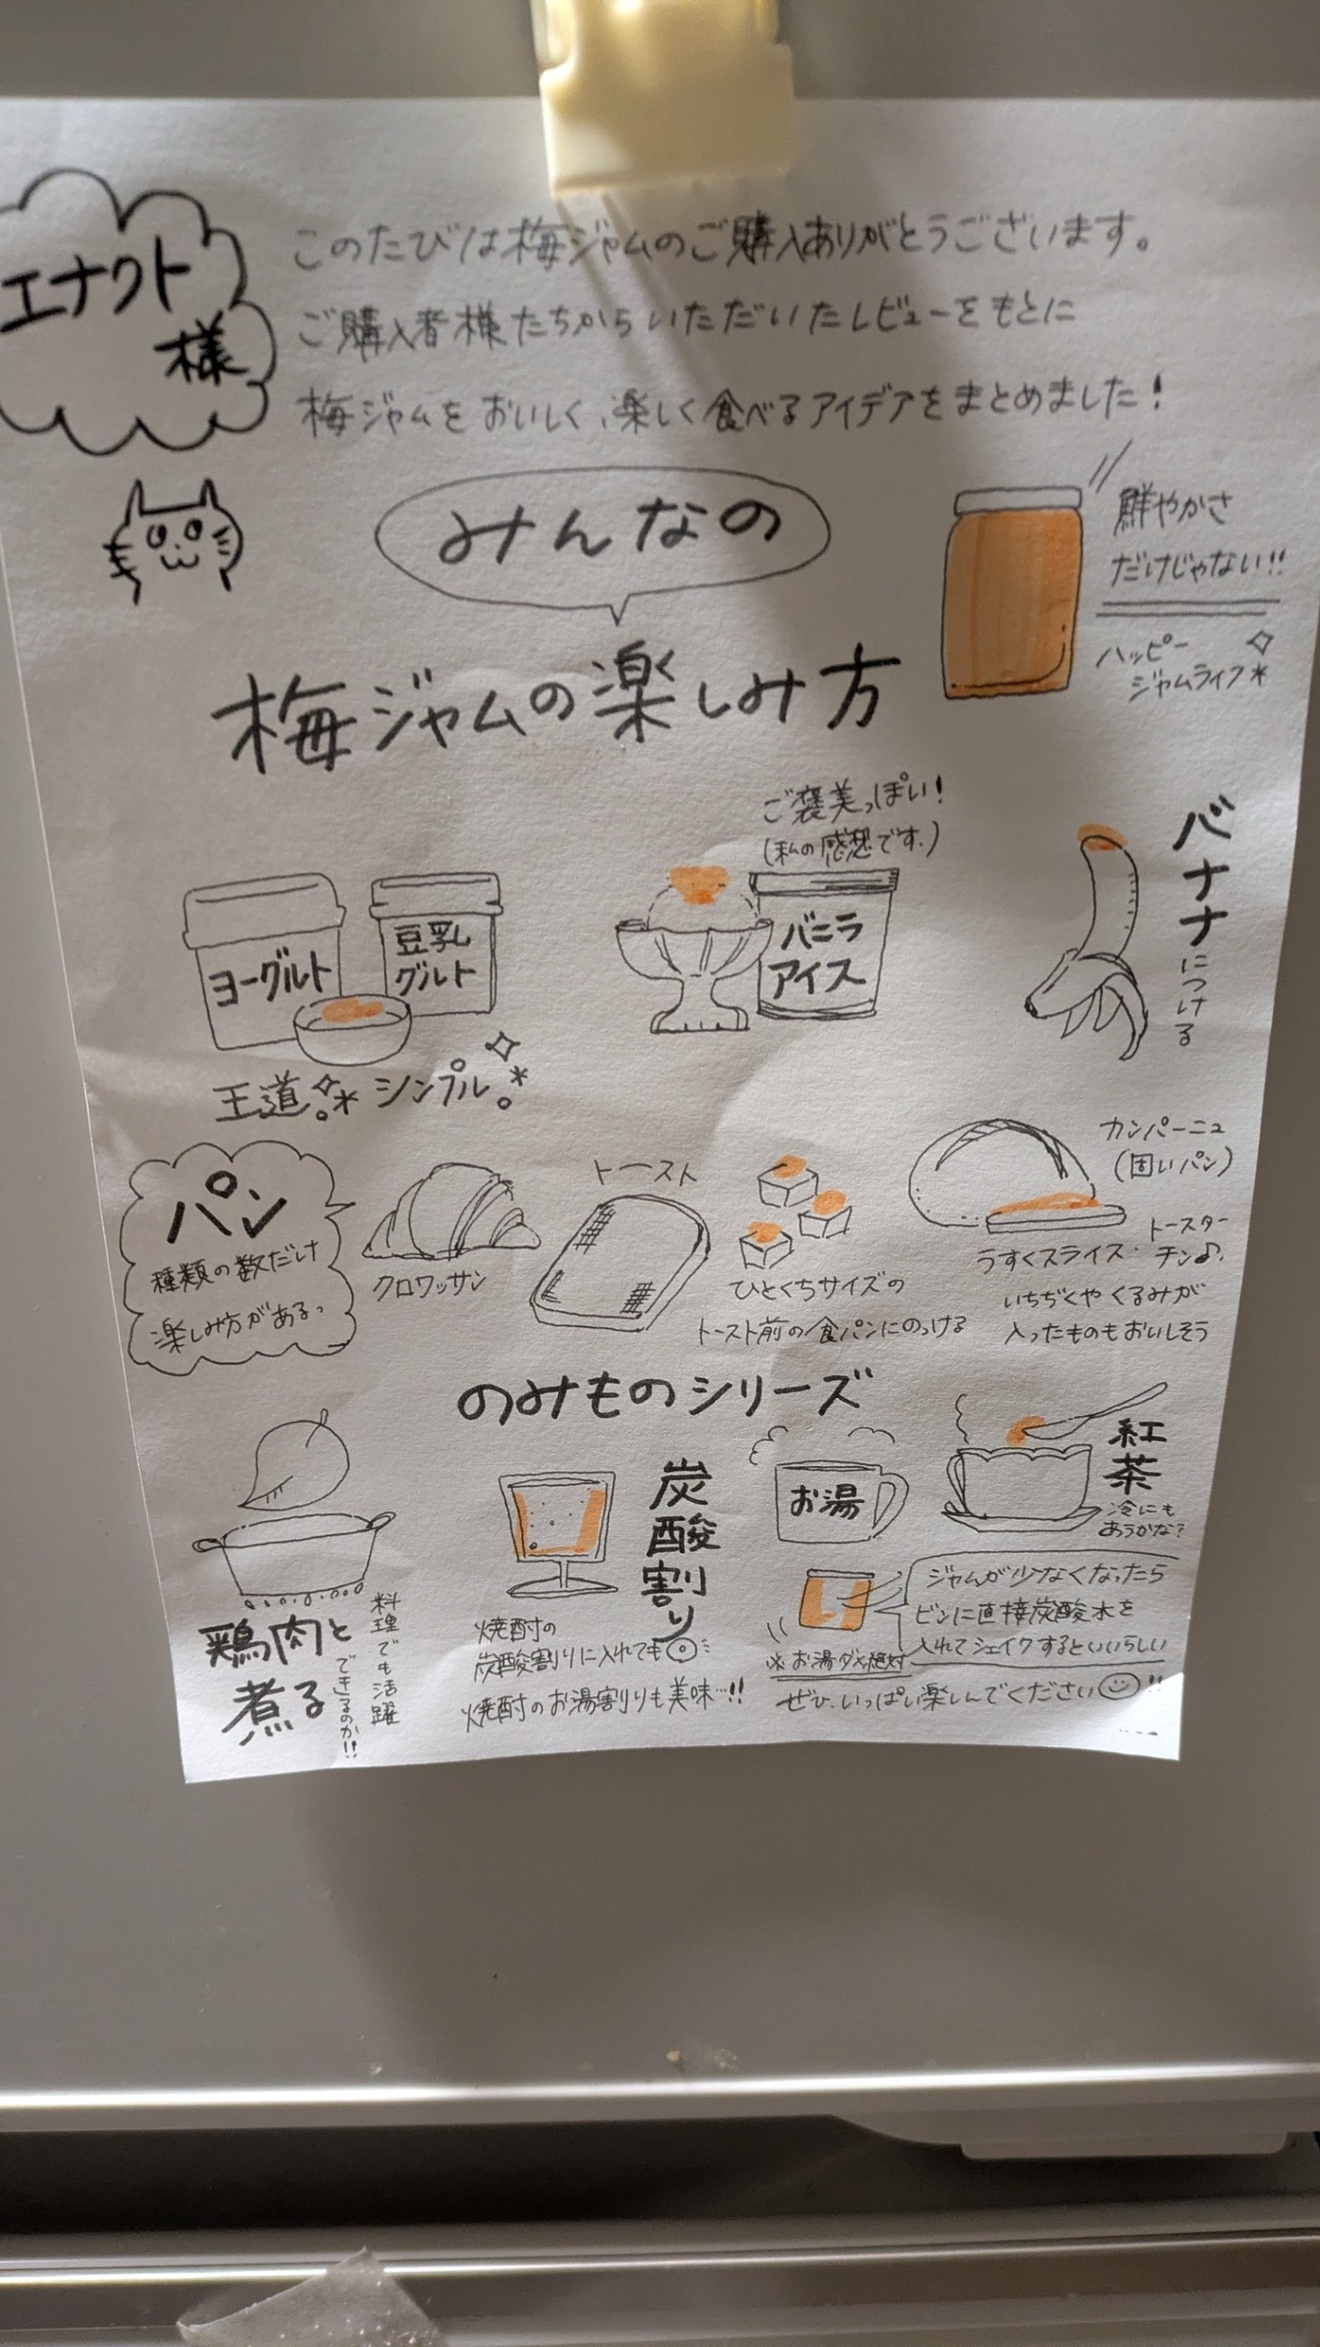 エナクト
様
このたびは梅ジャムのご購入ありがとうございます。
ご購入者様たちからいただいたレビューをもとに
梅ジャムをおいしく、楽しく食べるアイデアをまとめました!
みんなの
梅ジャムの楽しみ方
鮮やかさ
だけじゃない!!
ハッピー
ジャムライフ*
ヨーグルト
豆乳
グルト
王道 シンプル
ご褒美っぽい!
(私の感想です。)
バニラ
アイス
バナナにつける
パン
種類の数だけ
楽しみ方がある。
クロワッサン
トースト
ひとくちサイズの
トースト前の食パンにのっける
カンパーニュ
(固いパン)
うすくスライス・トースター
チン♪。
いちぢくやくるみが
入ったものもおいしそう
のみものシリーズ
鶏肉と
煮る
料理でも活躍
できるのか!!
炭酸割り
焼酎の
炭酸割りに入れても
焼酎のお湯割りも美味…!!
お湯
紅茶
冷にも
あうかな?
ジャムが少なくなったら
ビンに直接炭酸水を
入れてシェイクするといいらしい
※お湯ダメ絶対
ぜひ、いっぱい楽しんでください!!